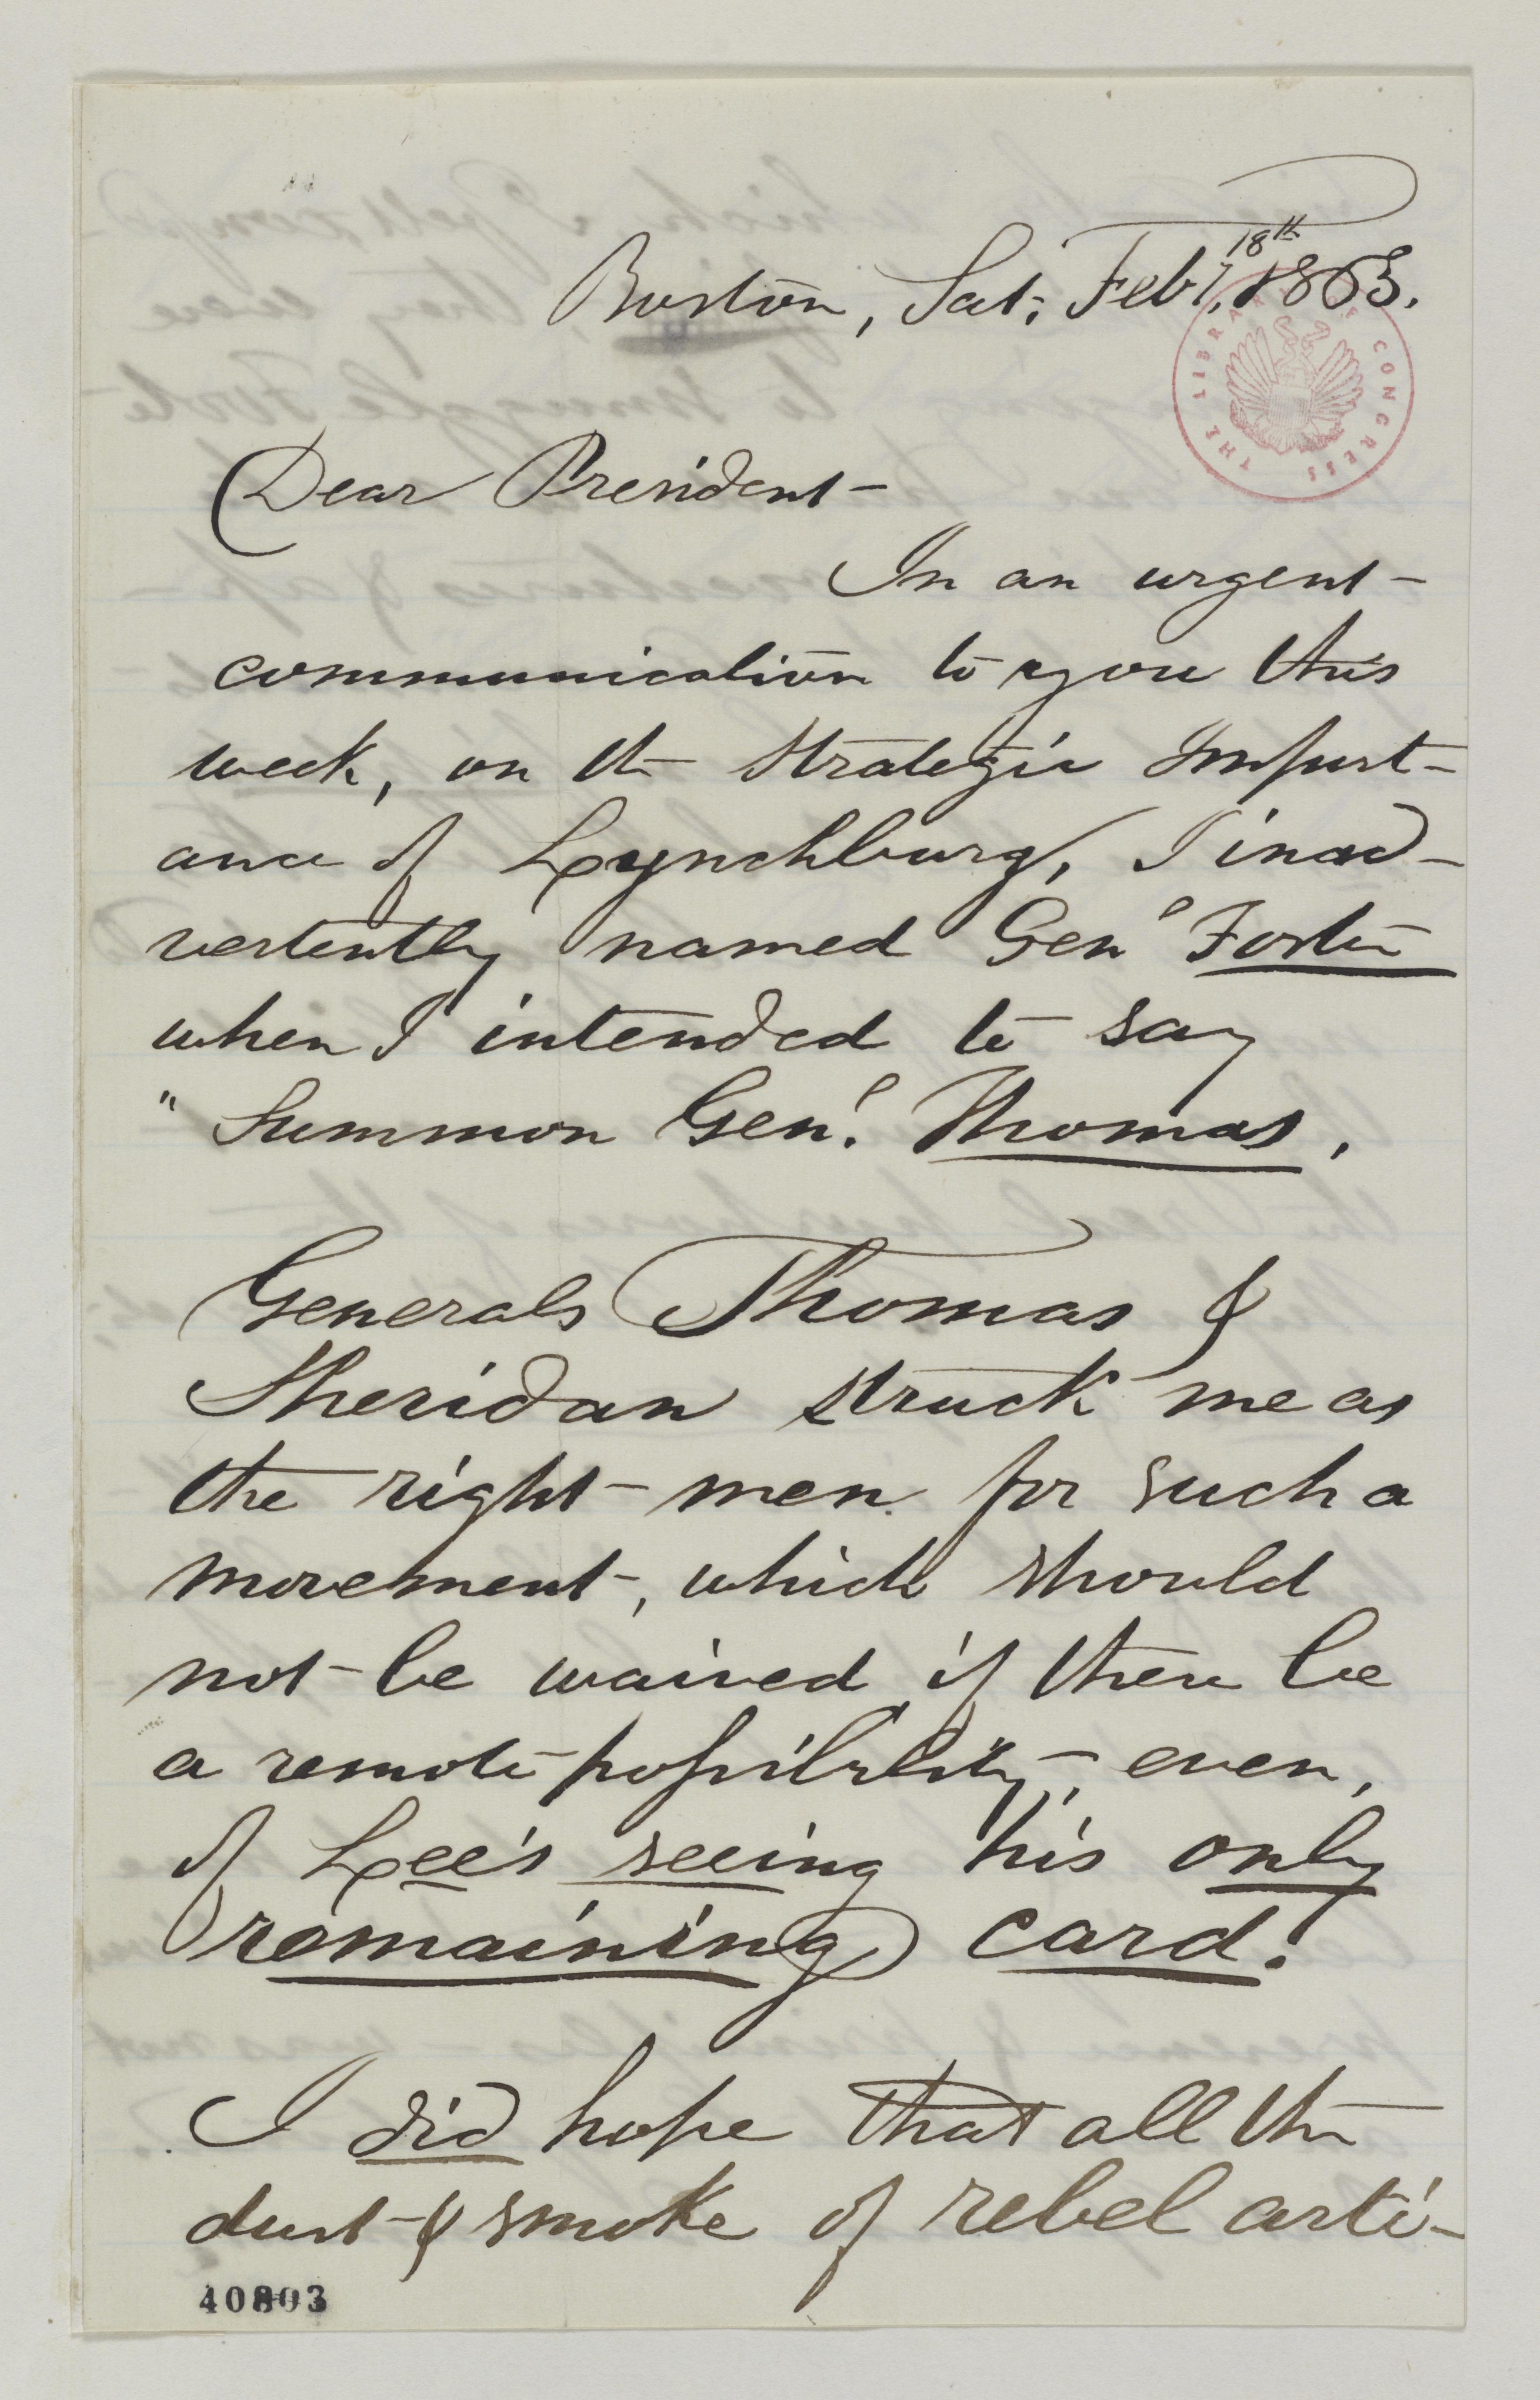 Boston, Sat; Feby. 18th 1865.
Dear President—
In an urgent
communication to you this
week, on the strategic import-
ance of Lynchburg, I inad-
vertently named Genl Foster
when I intended to say
"Summon Genl. Thomas.
Generals Thomas &
Sheridan struck me as
the right men for such a
movement, which should
not be waived if there be
a remote possibility, even,
of Lee's seeing his only
remaining card!
I did hope that all the
dust & smoke of rebel arti-
40803
THE LIBRARY OF CONGRESS